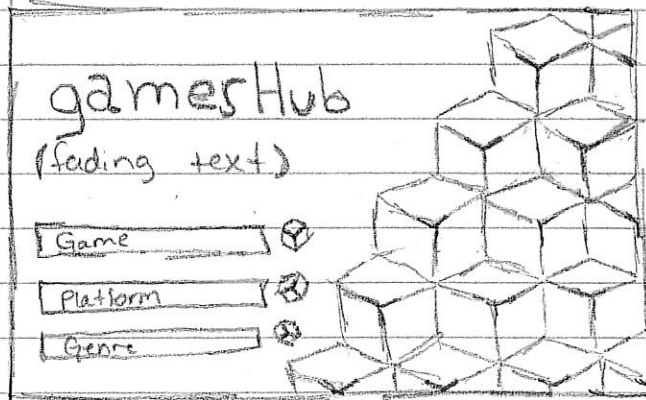 gamesHub
(fading text)
Game
Platform
Genre